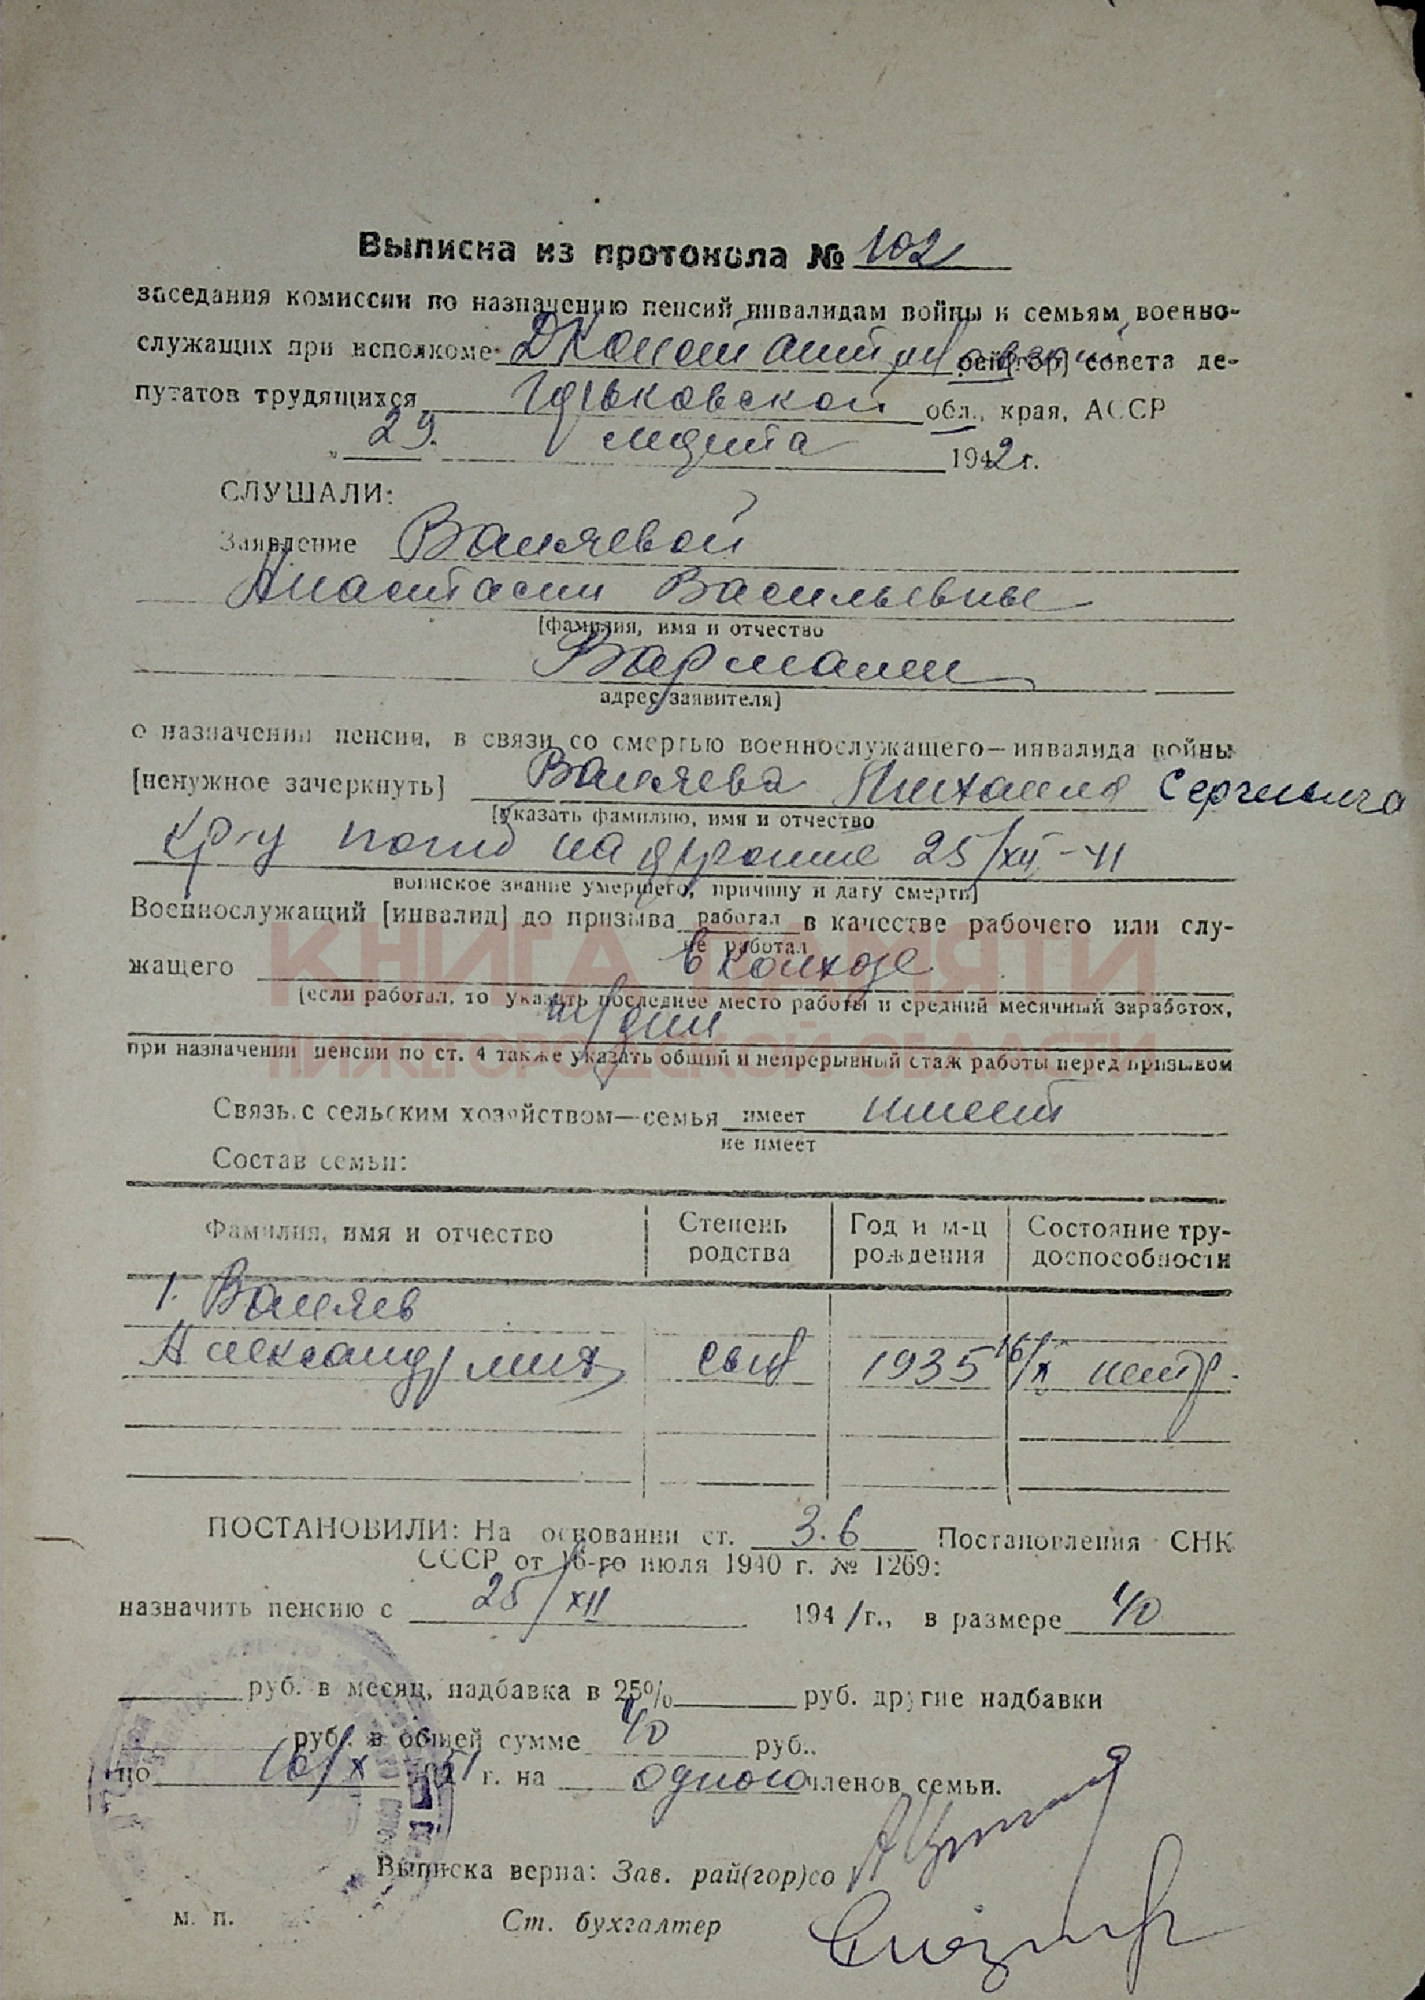 Выписка из протокола № 102
заседания комиссии по назначению пенсий инвалидам войны и семьям военно-
служащих при исполкоме ДКонстантиновский рай(гор) совета де-
путатов трудящихся Горьковской обл., края, АССР
„ 29. марта 1942 г.
СЛУШАЛИ:
Заявление Ваняевой
Анастасии Васильевны
[фамилия, имя и отчество
Вармалей
адрес заявителя]
о назначении пенсии, в связи со смертью военнослужащего—инвалида войны
[ненужное зачеркнуть] Ваняева Михаила Сергеевича
[указать фамилию, имя и отчество
кр-ц погиб на фронте 25/XII-41
воинское звание умершего, причину и дату смерти]
Военнослужащий [инвалид] до призыва работал в качестве рабочего или слу-
не работал
жащего в колхозе
(если работал, то указать последнее место работы и средний месячный заработок,
тр/дни
при назначении пенсии по ст. 4 также указать общий и непрерывный стаж работы перед призывом
КНИГА ПАМЯТИ
НИЖЕГОРОДСКОЙ ОБЛАСТИ
Связь с сельским хозяйством—семья имеет имеет
не имеет
Состав семьи:
Фамилия, имя и отчество Степень родства Год и м-ц рождения Состояние тру-доспособности
1. Ваняев
Александр Мих сын 1935 16/X нетр.
ПОСТАНОВИЛИ: На основании ст. 3.6 Постановления СНК
СССР от 16-го июля 1940 г. № 1269:
назначить пенсию с 25/XII 1941 г., в размере 40
руб. в месяц, надбавка в 25% руб. другие надбавки
руб. в общей сумме 40 руб..
по 16/X 51 г. на одного членов семьи.
Выписка верна: Зав. рай(гор)со
м. п. Ст. бухгалтер